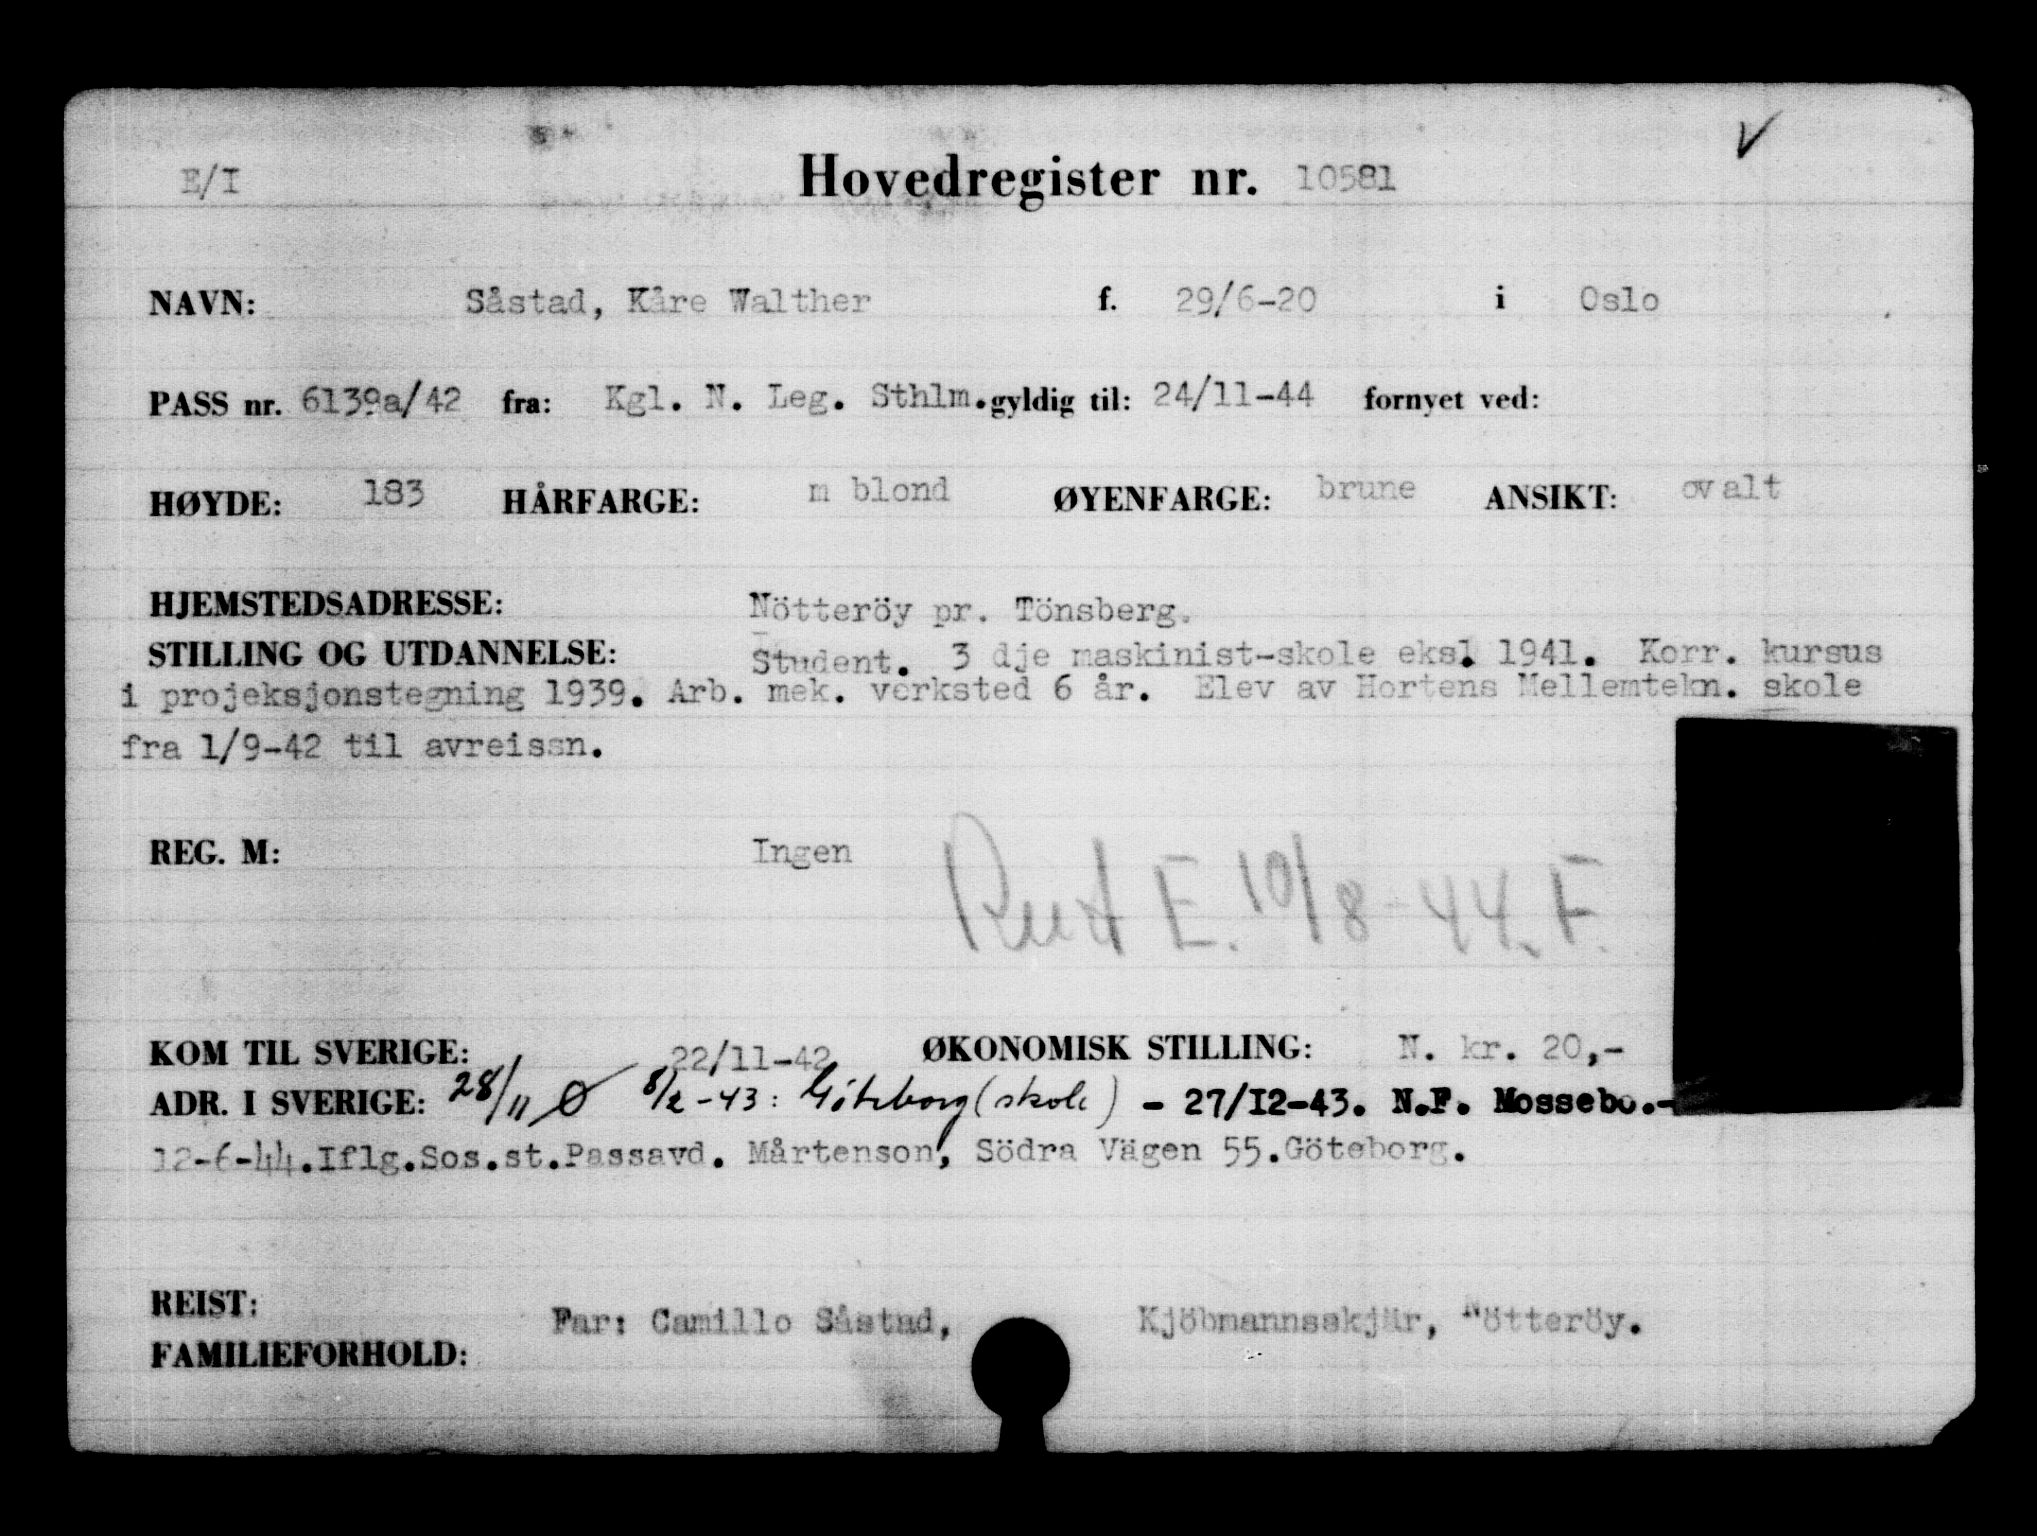 E/I Hovedregister nr. 10581
NAVN: Såstad, Kåre Walther f. 29/6-20 i Oslo
PASS nr. 6139a/42 fra: Kgl. N. Leg. Sthlm. gyldig til: 24/11-44 fornyet ved:
HØYDE: 183 HÅRFARGE: m blond ØYENFARGE: brune ANSIKT: ovalt
HJEMSTEDSADRESSE: Nötteröy pr. Tönsberg.
STILLING OG UTDANNELSE: Student. 3 dje maskinist-skole eks. 1941. Korr. kursus
i projeksjonstegning 1939. Arb. mek. verksted 6 år. Elev av Hortens Mellemtekn. skole
fra 1/9-42 til avreissn.
REG. M: Ingen
E. 10/8-44. F.
KOM TIL SVERIGE: 22/11-42 ØKONOMISK STILLING: N. kr. 20,-
ADR. I SVERIGE: 28/11 Ø 8/2-43: Göteborg (skole) - 27/12-43. N.F. Mossebo.-
12-6-44. Iflg. Sos.st. Passavd. Mårtenson, Södra Vägen 55. Göteborg.
REIST:
Far: Camillo Såstad, Kjöbmannsskjär, Nötteröy.
FAMILIEFORHOLD: